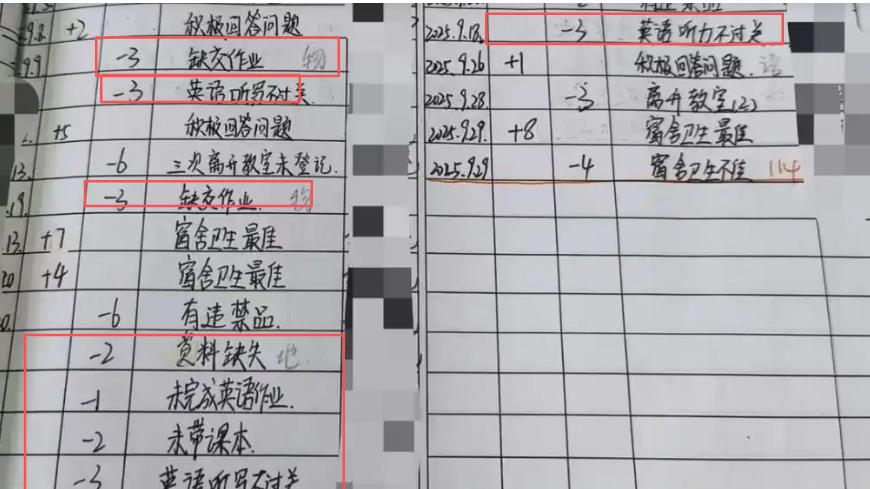 9.8. +2 积极回答问题
9.9. -3 缺交作业 物
-3 英语听写不过关.
+5 积极回答问题
13. -6 三次离开教室未登记.
19. -3 缺交作业. 物
13. +7 宿舍卫生最佳
20 +4 宿舍卫生最佳
-6 有违禁品.
-2 资料缺失 地.
-1 未完成英语作业.
-2 未带课本.
-3 英语听写不过关
2025.9.18. -3 英语听力不过关.
2025.9.26 +1 积极回答问题. 语
2025.9.28 -3 离开教室(2)
2025.9.29. +8 宿舍卫生最佳
2025.9.29 -4 宿舍卫生不佳 114